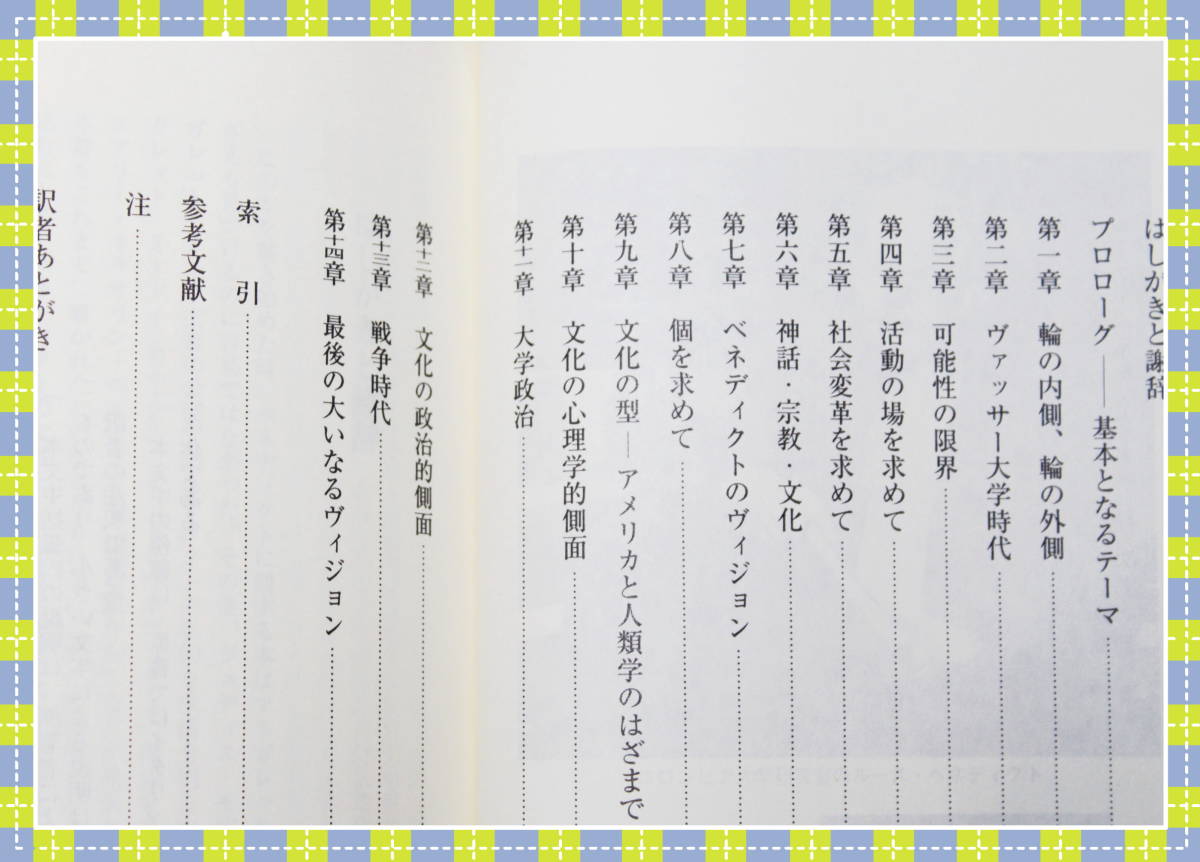 はしがきと謝辞
プロローグ——基本となるテーマ
第一章 輪の内側、輪の外側
第二章 ヴァッサー大学時代
第三章 可能性の限界
第四章 活動の場を求めて
第五章 社会変革を求めて
第六章 神話・宗教・文化
第七章 ベネディクトのヴィジョン
第八章 個を求めて
第九章 文化の型——アメリカと人類学のはざまで
第十章 文化の心理学的側面
第十一章 大学政治
第十二章 文化の政治的側面
第十三章 戦争時代
第十四章 最後の大いなるヴィジョン
索引
参考文献
注
訳者あとがき